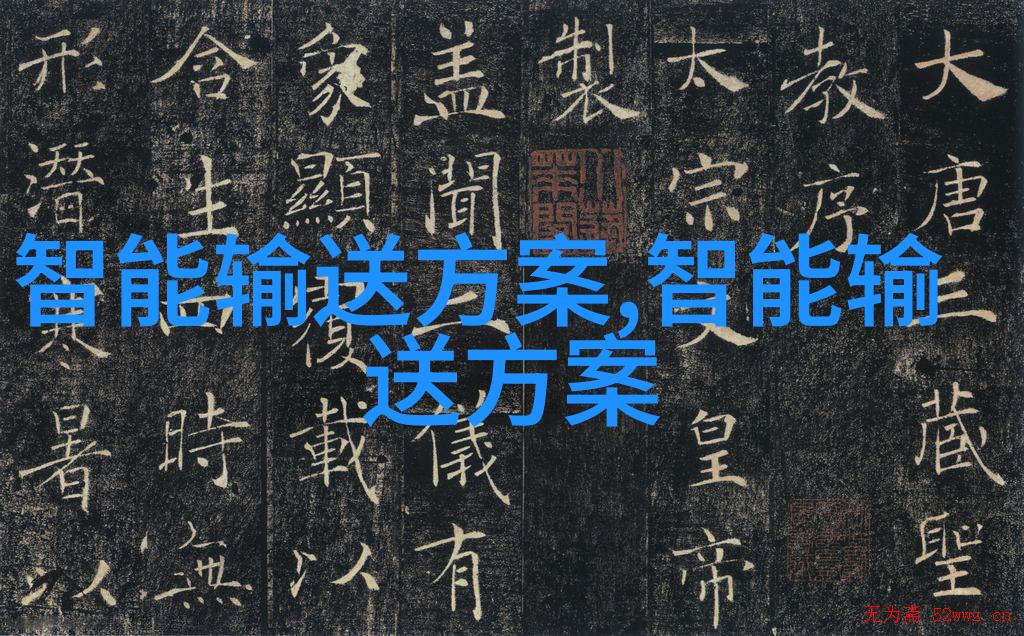 智能输送方案,智能输
送方案
大唐三藏聖
教序
太宗文皇帝
製
盖聞二儀有
象顯覆載以
含生四時無
形潛寒暑以
无为斋 52wwz.cn